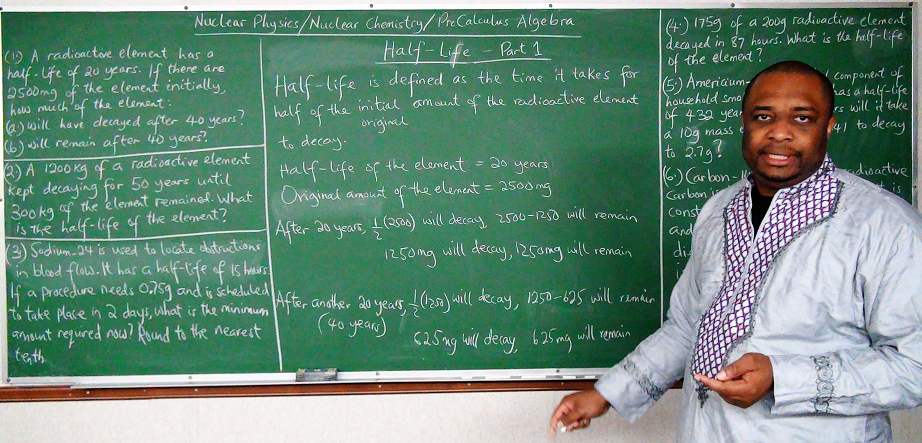 Nuclear Physics/Nuclear Chemistry/PreCalculus Algebra
(1.) A radioactive element has a
half-life of 20 years. If there are
2500mg of the element initially,
how much of the element:
(a.) will have decayed after 40 years?
(b.) will remain after 40 years?
(2.) A 1200kg of a radioactive element
kept decaying for 50 years until
300kg of the element remained. What
is the half-life of the element?
(3.) Sodium-24 is used to locate obstructions
in blood flow. It has a half-life of 15 hours.
If a procedure needs 0.75g and is scheduled
to take place in 2 days, what is the minimum
amount required now? Round to the nearest
tenth.
Half-Life - Part 1
Half-life is defined as the time it takes for
half of the initial amount of the radioactive element
original
to decay.
Half-life of the element = 20 years
Original amount of the element = 2500mg
After 20 years, 1/2(2500) will decay, 2500-1250 will remain
1250mg will decay, 1250mg will remain
After another 20 years, 1/2(1250) will decay, 1250-625 will remain
(40 years)
625mg will decay, 625mg will remain
(4.) 175g of a 200g radioactive element
decayed in 87 hours. What is the half-life
of the element?
(5.) Americium- component of
household has a half-life
of 432 will it take
a 10g mass 41 to decay
to 2.7g?
(6.) Carbon- radioactive
Carbon is
and